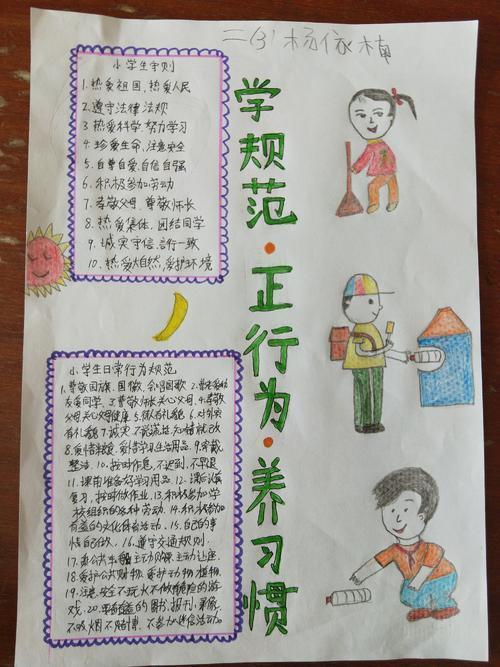 二(3) 杨依楠
小学生守则
1.热爱祖国,热爱人民
2.遵守法律法规
3热爱科学,努力学习
4.珍爱生命,注意安全
5.自尊自爱,自信自强
6.积极参加劳动
7.孝敬父母,尊敬师长
8.热爱集体,团结同学
9.诚实守信,言行一致
10.热爱大自然,爱护环境
学规范·正行为·养习惯
小学生日常行为规范
1.尊敬国旗、国徽,会唱国歌 2.
友爱同学,3尊敬师长关心父母,4.孝敬
父母关心父母健康 5.待人有礼貌 6.对
有礼貌 7.诚实 不说谎话,知错就改
8.爱惜粮食,爱惜学习生活用品.9.穿戴
整洁. 10.按时作息,不迟到、不早退
11.课前准备好学习用品 12.课后认真
复习,按时做作业,13.积极参加学
校组织的各种劳动.14.积极参加
有益的文化体育活动.15.自己的事
情自己做.16.遵守交通规则.
17.乘公共车 主动购票,主动让座.
18.爱护公共财物.爱护动物植物.
19.注意安全不玩火不做危险的游
戏.20.有益的图书,报刊,录像.
不吸烟不赌博.不参加迷信活动